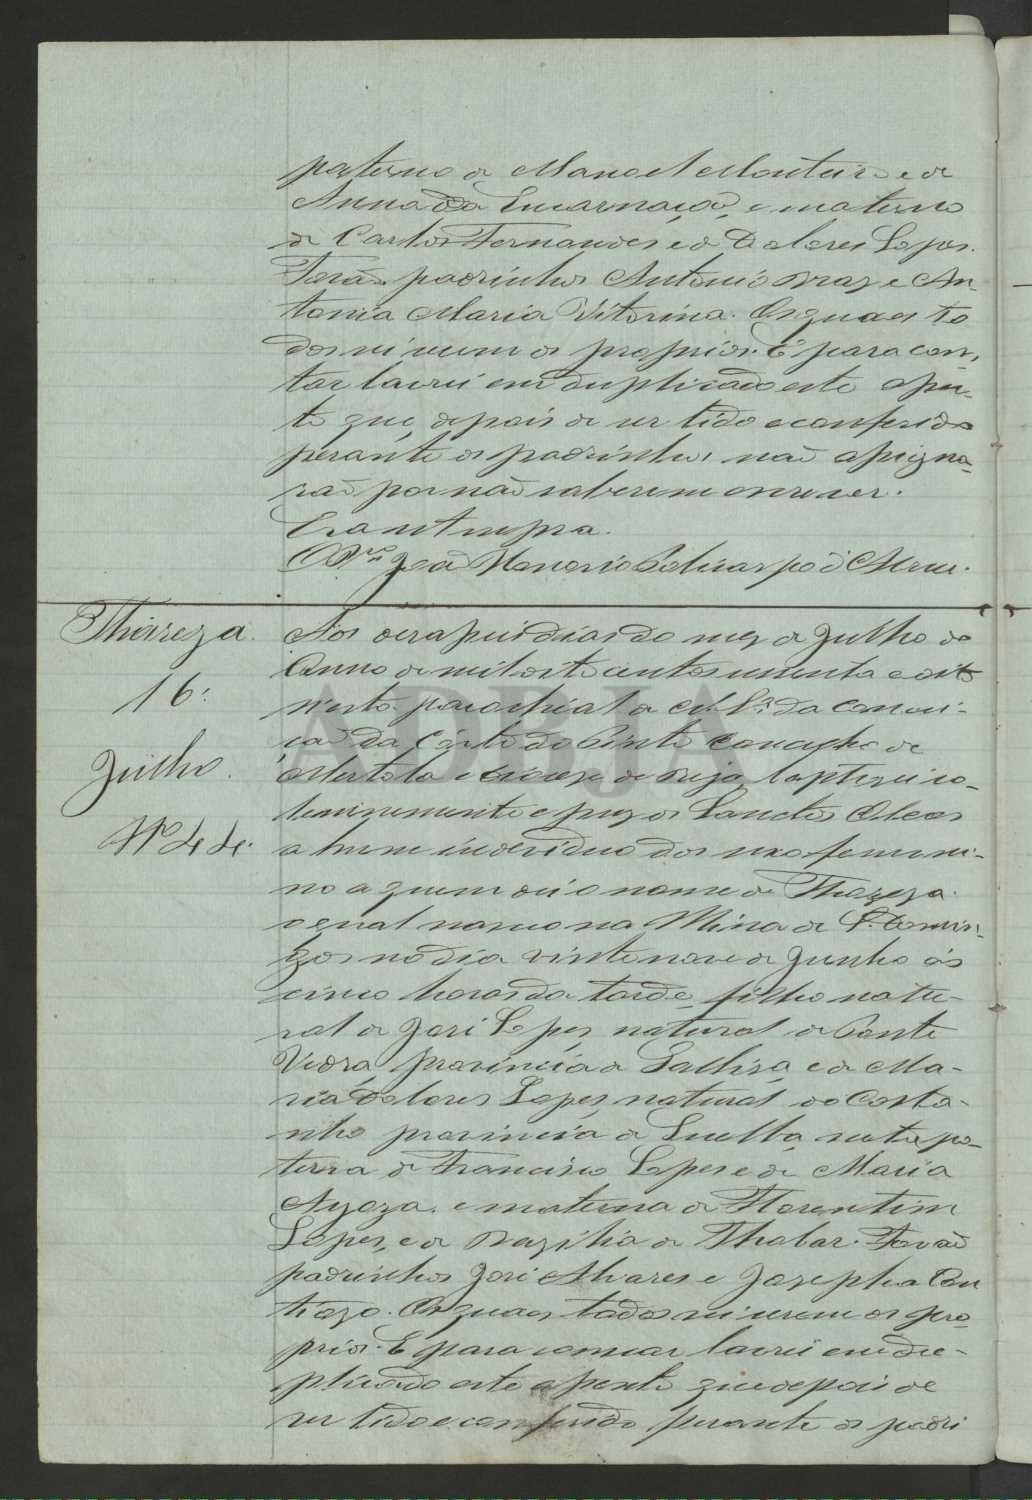 paterno de Manoel Monteiro e de
Anna da Encarnação, e materno
de Carlos Fernandes e de Dolores Lopes.
Forão padrinhos Antonio Braz e An
tonia Maria Vitorina. Os quaes to
dos si serem os proprios. E para cons,
tar lavrei em duplicado este assen-
to que, depois de ser lido e conferido
perante os padrinhos não assigna-
rão por não saberem escrever.
Era ut supra.
O Pr.or João Honorio Policarpo d'
Thereza.
16
Julho.
Nº 44.
Aos dezaseis dias do mez de Julho do
Anno de mil oito centos sessenta e oito
n'esta parochial de N. Sr.ª da Concei-
ção da Côrte do Pinto concelho de
Mertola e diocese de Beja, baptizei so-
lemnemente e puz os Sanctos Oleos
a hum individuo do sexo femeni-
no a quem dei o nome de Thereza.
o qual nasceo na Mina de S. Domin-
gos no dia vinte nove de Junho ás
cinco horas da tarde, filho natu-
ral de José Lopes, natural de Ponte
Vedra, provincia de Galliza, e de Ma-
ria Dolores Lopes, natural do Casta-
nho provincia de Huelba, neta pa-
terna de Francisco Lopes e de Maria
e materna de Florentim
Lopes, e de Bazilia de Thobar. Forão
padrinhos José Alvares e Josepha Con
tiego. Os quaes todos si serem os pro-
prios. E para constar lavrei em du-
plicado este assento que depois de
ser lido e conferido perante os padri
ADBJA